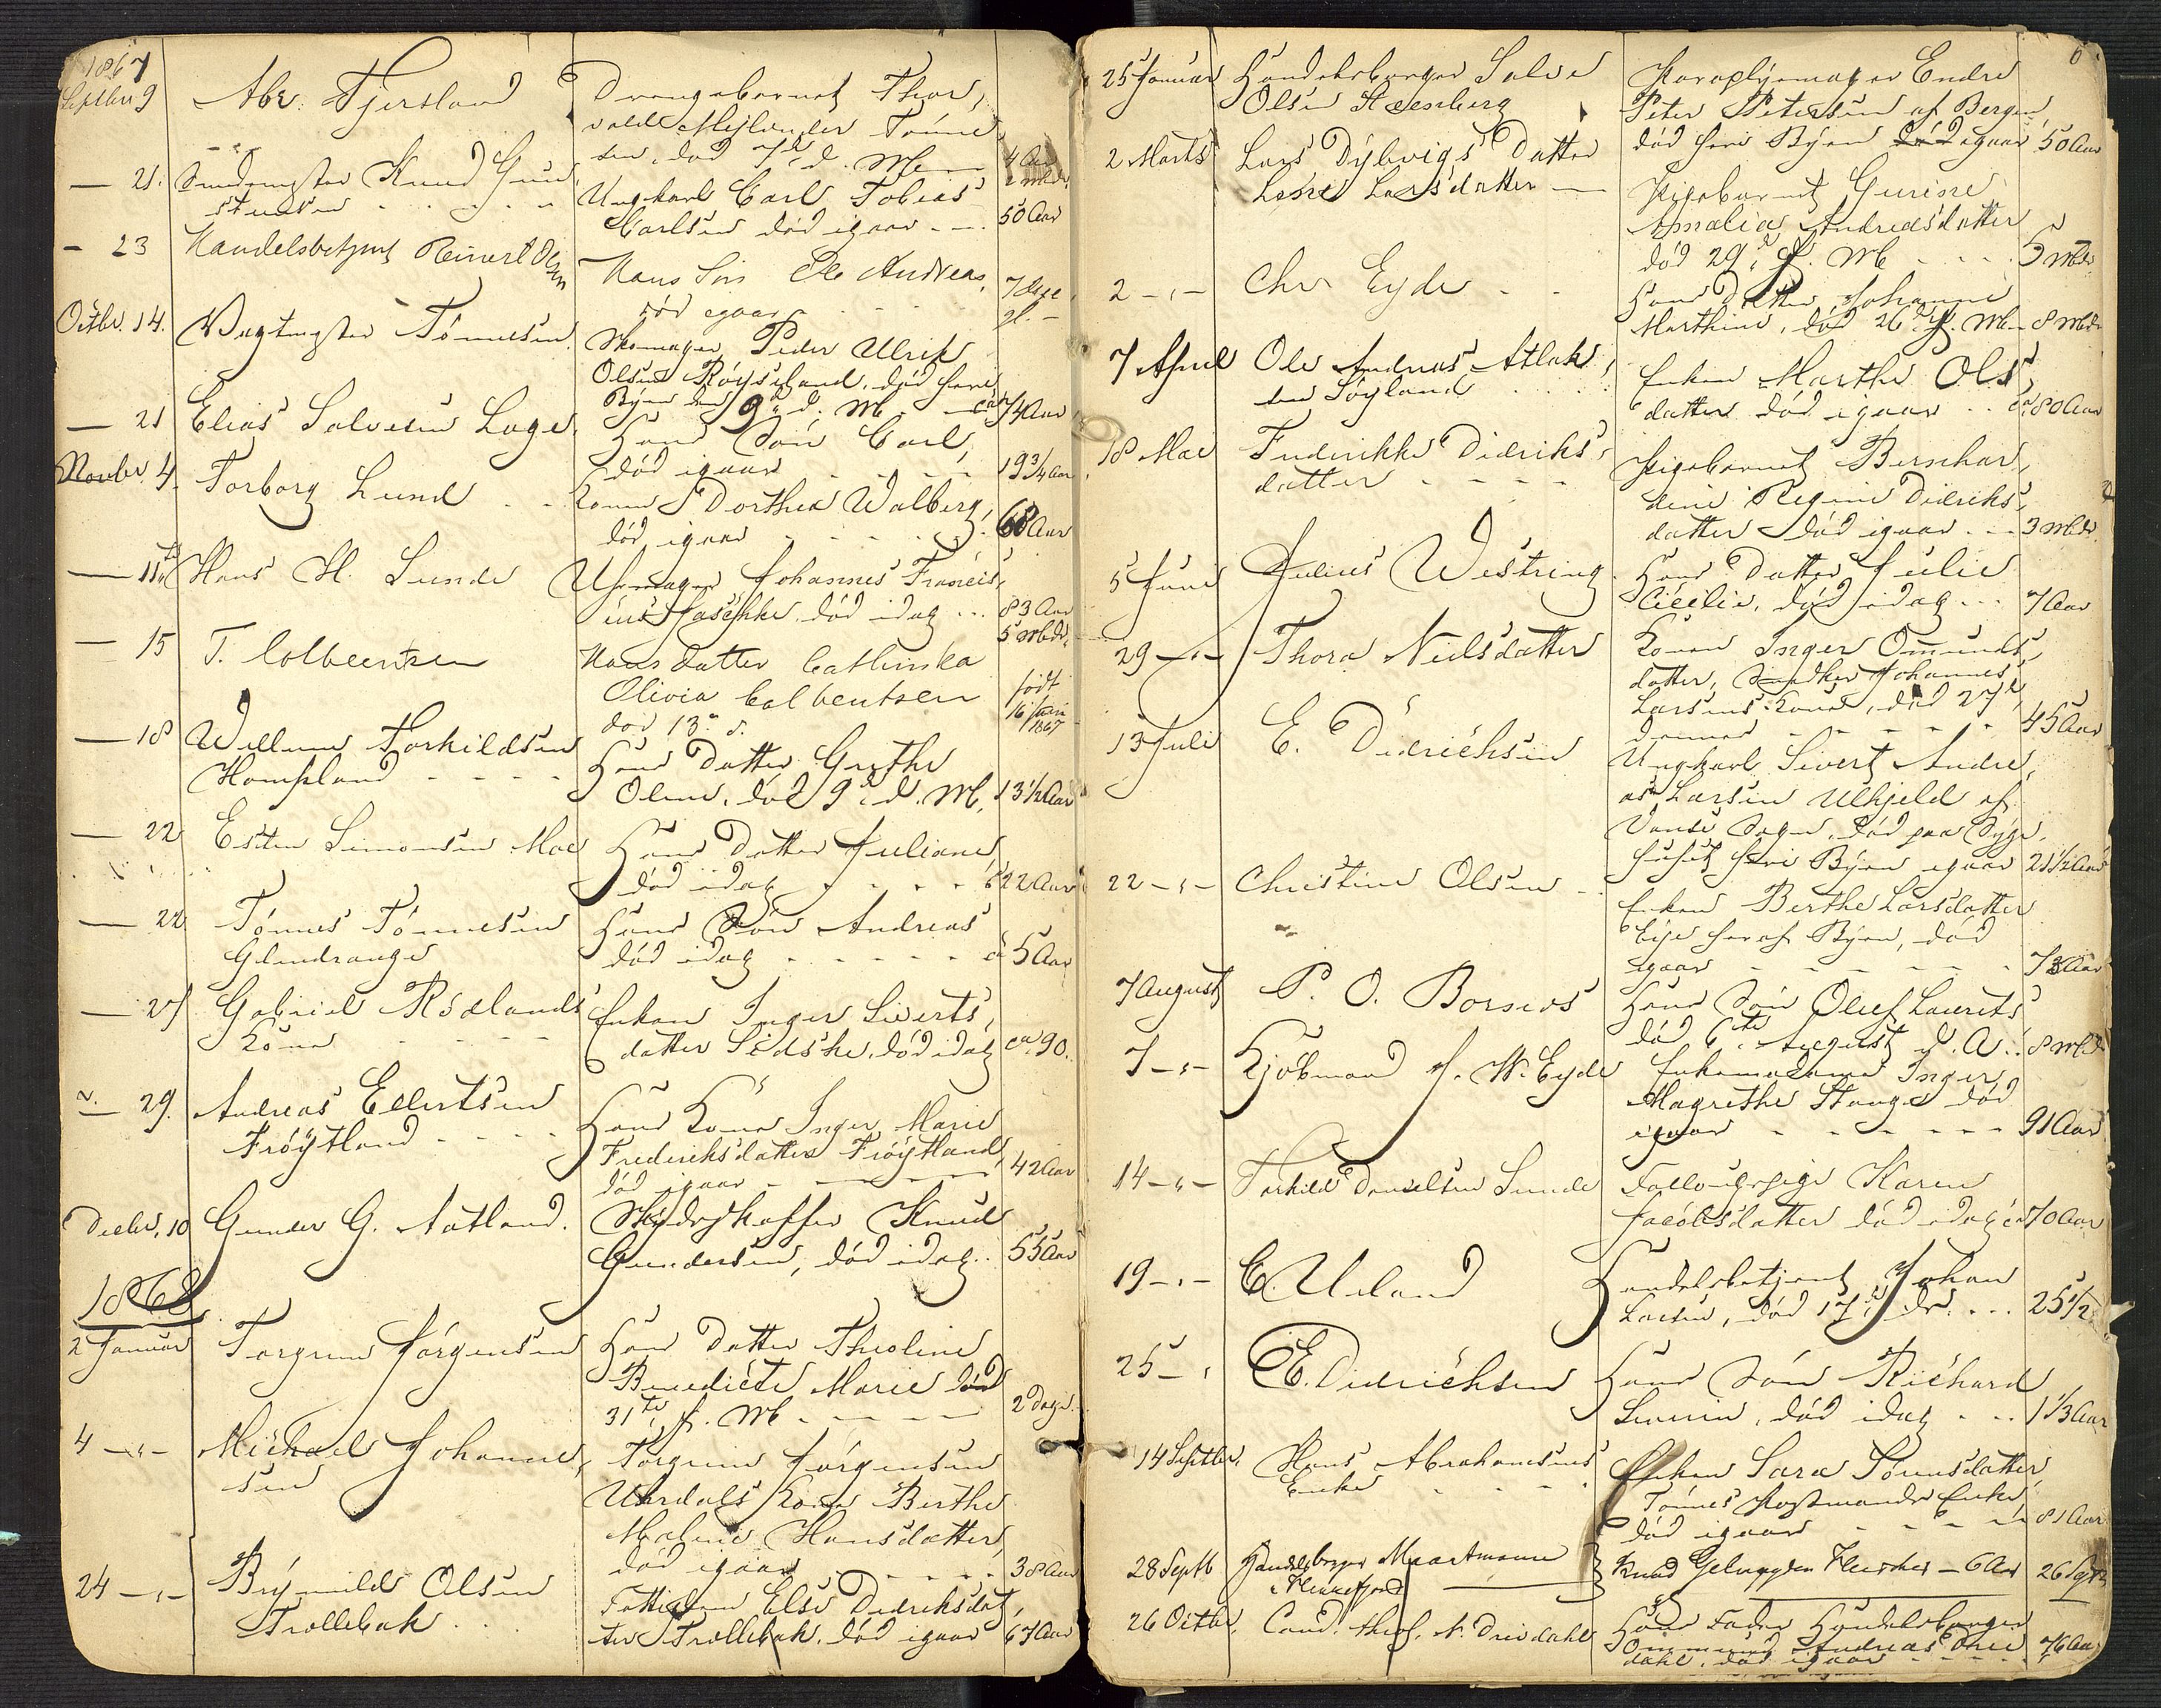 1867
Septbr 9 Abr: Fjersland Drengebarnet Thor,
valdt Mejlender Tønne,
sen, død 7d d. M. 4 Aar 2 Mdr.
— 21. Knud Gun
stensen Ungkarl Carl Tobias
Carlsen død igaar 50 Aar
— 23 Handelsbetjent Reinert Olsen Hans Søn Ole Andreas,
død igaar 7 Uger
Octbr. 14. Vagtmester Tønnesen Skomager Peder Ulrik
Olsen Røysland, død heri
Byen den 9de d. M. ca 74 Aar
— 21 Elias Salvesen Lage Hans Søn Carl,
død igaar 19 3/4 Aar
Novbr 4. Torborg Lund Konen Dorthea Walberg,
død igaar 68 Aar
— 11te Hans H. Sunde Uhrmager Johannes Francis,
cus Jaschke død idag 83 Aar
5 Mdr.
— 15 T. Colbentsen Hans datter Cathinka
Olivia Colbentsen
død 13de d. født 16 Juni 1867
— 18 Willum Torkildsen
Hompland Hans Datter Grethe
Oline, død 9de d. M. 13 1/2 Aar
— 22 Esten Simonsen Moe Hans Datter Juliane,
død idag 22 Aar
— 22 Tønnes Tønnesen
Glendrange Hans Søn Andreas
død idag ca 5 Aar
— 27 Gabriel Rødlands
Kone Enken Inger Siverts,
datter Sedske, død idag ca 90.
— 29. Andreas Ellertsen
Frøytland Hans Kone Inger Marie
Frederiksdatter Frøytland,
død igaar 42 Aar
Decbr. 10 Gunder G. Aatland. Skydsskaffer Knud
Gundersen, død idag 55 Aar
1868
2 Januar Torgrim Jørgensen Hans Datter Theoline
Benedicte Marie død
31te f. M. 2 Dage
4 — Michael Johanne,
sen Torgrim Jørgensen
Uhrdals Kone Berthe
Malene Hansdatter,
død igaar 38 Aar
24 — Brynild Olsen
Trollebak Else Didriksdat,
ter Trollebak, død igaar 67 Aar
6
25 Januar Handelsborger Salve
Olsen Steensberg Paraplymager Endre
Peter Petersen af Bergen,
død heri Byen igaar 50 Aar
2 Marts Lars Dybvigs Datter
Lene Larsdatter Pigebarnet Gurine
Amalia Andreasdatter
død 29de f. M. 5 Mdr
2 — Chr. Eyde Hans Datter Johanne
Marthine, død 26de f. M. 8 Mdr
7 April Ole Andreas Atlak,
sen Søyland Enken Marthe Ols,
datter død igaar ca 80 Aar
18 Mai Frederikke Didriks,
datter Pigebarnet Bernhar,
dine Regine Didriks,
datter død igaar 3 Mdr.
5 Juni Julius Westring Hans Datter Julie
Cicilie, død idag 7 Aar
29 — Thora Nielsdatter Konen Inger Omunds,
datter, Snedker Johannes
Larsens Kone, død 27de
dennes 45 Aar
13 Juli E. Didrichsen Ungkarl Sivert Andre,
as Larsen Ulhjeld af
Vanse Sogn, død paa Syge,
huset heri Byen igaar 21 1/2 Aar
22 — Christine Olsen Enken Berthe Larsdatter
Eije heraf Byen, død
igaar 73 Aar
7 August P. O. Borsrøs Hans Søn Oluf Laurits
død 6te August d. A. 8 Mdr
7 — Kjøbmand J. W. Eyde Enkemadame Inger
Magrethe Stange død
igaar 91 Aar
14 — Torkild Danielsen Sunde Karen
Jacobsdatter død idag ca 70 Aar
19 — E. Ueland Handelsbetjent Johan
Larsen, død 17de ds. 25 1/2
25 — E. Didrichsen Hans Søn Richard
Severin, død idag 1 1/3 Aar
14 Septbr. Hans Abrahamsens
Enke Enken Sara Tønnesdatter,
Tønnes Postmands Enke
død igaar 81 Aar
28 Septb Handelsborger Muartmann
i Flekkefjord Knud Fleischer — 6 Aar 26 Sept
26 Octbr. Cand. theol. N. Dreidahl Hans Fader Handelsborger
Ommund Andreas Drei
dahl, død igaar 76 Aar